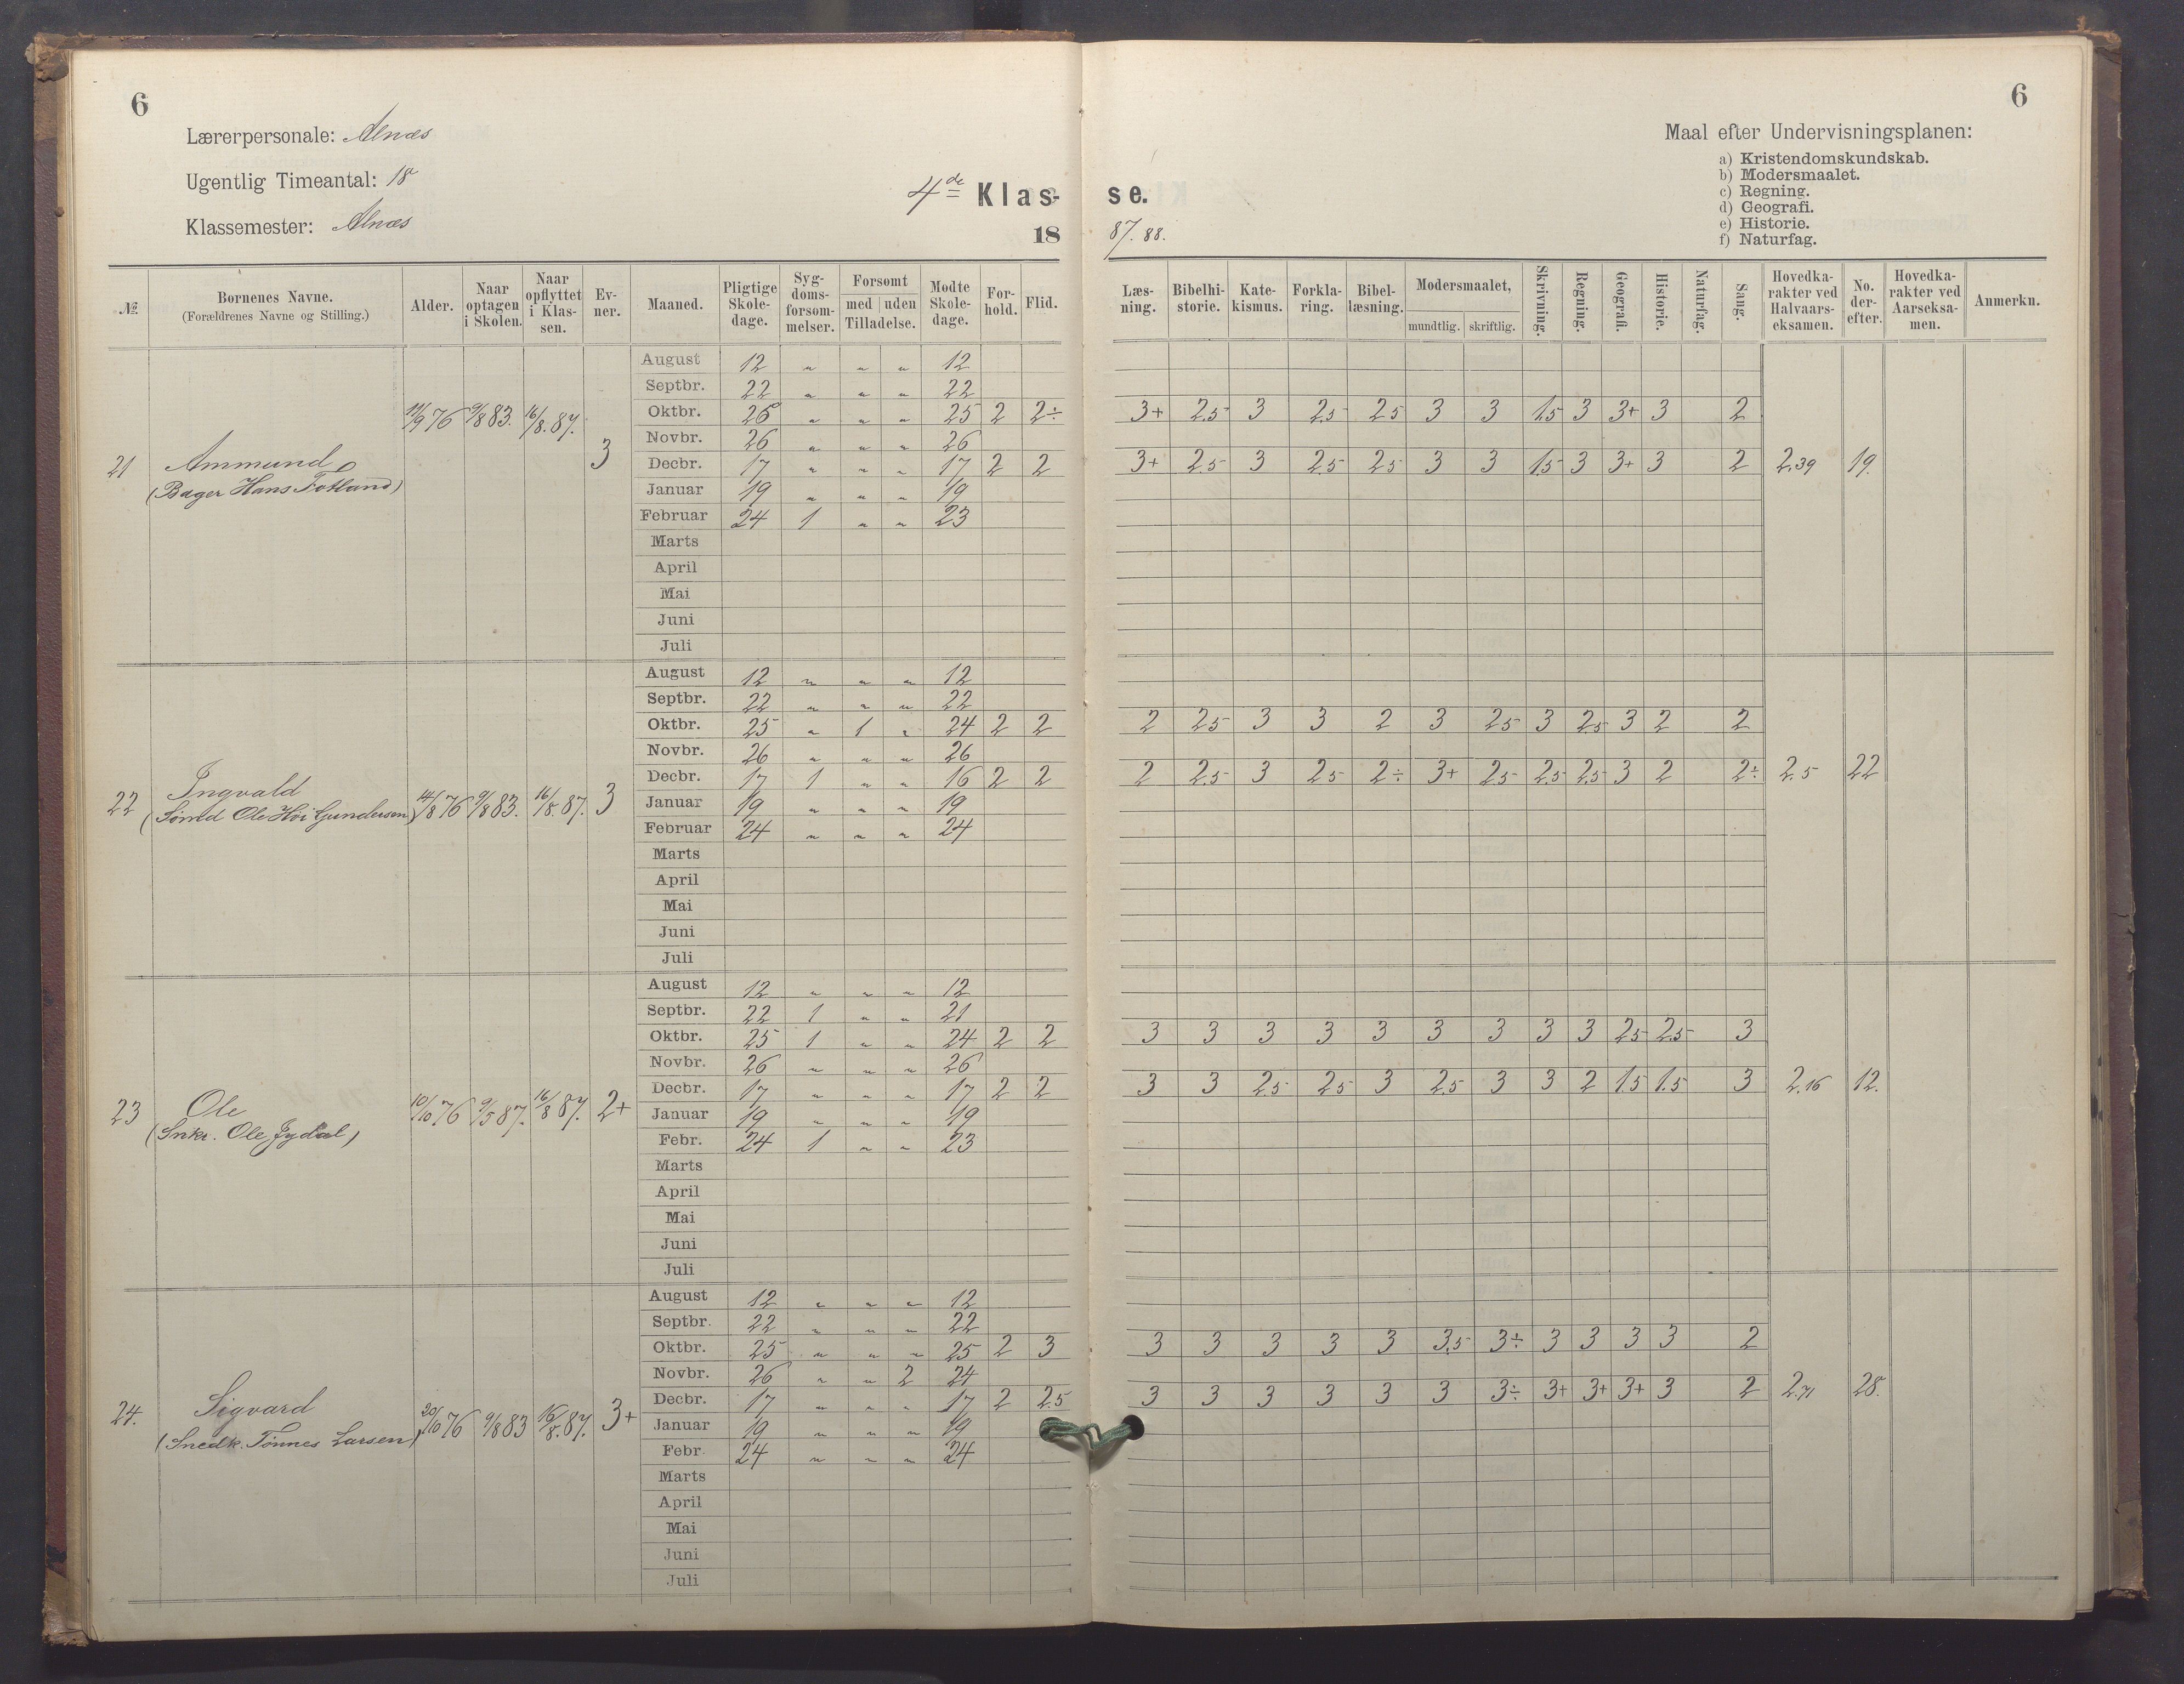 6
6
Lærerpersonale: Alnæs
Ugentlig Timeantal: 18
Klassemester: Alnæs
4de Klas- se.
18 87. 88.
Maal efter Undervisningsplanen:
a) Kristendomskundskab.
b) Modersmaalet.
c) Regning.
d) Geografi.
e) Historie.
f) Naturfag.
№ Børnenes Navne. (Forældrenes Navne og Stilling.) Alder. Naar optagen i Skolen. Naar opflyttet i Klassen. Evner. Maaned. Pligtige Skoledage. Sygdomsforsømmelser. Forsømt med uden Tilladelse. Mødte Skoledage. Forhold. Flid. Læsning. Bibelhistorie. Katekismus. Forklaring. Bibellæsning. Modersmaalet, mundtlig. skriftlig. Skrivning. Regning. Geografi. Historie. Naturfag. Sang. Hovedkarakter ved Halvaarseksamen. No. derefter. Hovedkarakter ved Aarseksamen. Anmerkn.
21 Ammund
(Bager Hans Fotland)
11/9 76 9/8 83. 16/8. 87. 3
August 12 " " " 12
Septbr. 22 " " " 22
Oktbr. 25 " " " 25 2 2÷ 3+ 2.5 3 2.5 2.5 3 3 1.5 3 3+ 3 2
Novbr. 26 " " " 26
Decbr. 17 " " " 17 2 2 3+ 2.5 3 2.5 2.5 3 3 1.5 3 3+ 3 2 2.39 19.
Januar 19 " " " 19
Februar 24 1 " " 23
Marts
April
Mai
Juni
Juli
22 Ingvald
(Sømd Ole Høi Gundersen)
14/8 76 9/8 83. 16/8. 87. 3
August 12 " " " 12
Septbr. 22 " " " 22
Oktbr. 25 " 1 " 24 2 2 2 2.5 3 3 2 3 2.5 3 2.5 3 2 2
Novbr. 26 " " " 26
Decbr. 17 1 " " 16 2 2 2 2.5 3 2.5 2÷ 3+ 2.5 2.5 2.5 3 2 2÷ 2.5 22
Januar 19 " " " 19
Februar 24 " " " 24
Marts
April
Mai
Juni
Juli
23 Ole
(Snkr. Ole Jydal)
10/10 76 9/5 87. 16/8 87. 2+
August 12 " " " 12
Septbr. 22 1 " " 21
Oktbr. 25 1 " " 24 2 2 3 3 3 3 3 3 3 3 3 2.5 2.5 3
Novbr. 26 " " " 26
Decbr. 17 " " " 17 2 2 3 3 2.5 2.5 3 2.5 3 3 2 1.5 1.5 3 2.16 12.
Januar 19 " " " 19
Febr. 24 1 " " 23
Marts
April
Mai
Juni
Juli
24. Sigvard
(Snedk. Tønnes Larsen)
20/10 76 9/8 83 16/8. 87. 3+
August 12 " " " 12
Septbr. 22 " " " 22
Oktbr. 25 " " " 25 2 3 3 3 3 3 3 3.5 3÷ 3 3 3 3 2
Novbr. 26 " " 2 24
Decbr. 17 " " " 17 2 2.5 3 3 3 3 3 3 3÷ 3+ 3+ 3+ 3 2 2.71 28.
Januar 19 " " " 19
Febr. 24 " " " 24
Marts
April
Mai
Juni
Juli